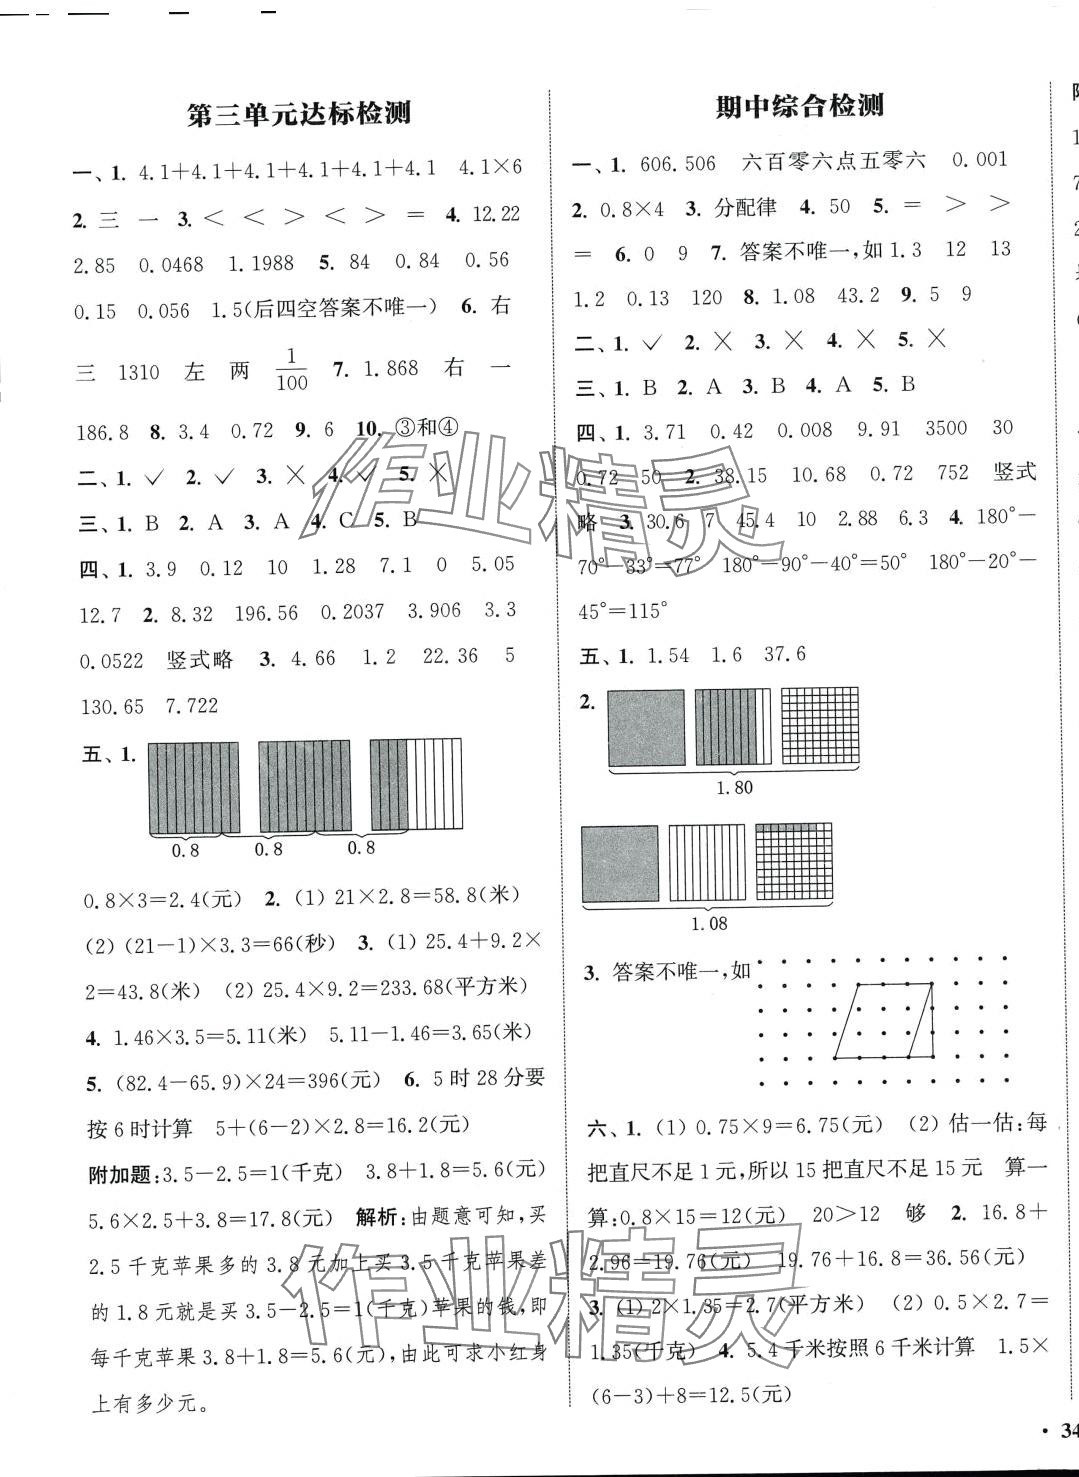 第三单元达标检测
一、1. 4.1+4.1+4.1+4.1+4.1+4.1 4.1×6
2. 三 一 3. < < > < > = 4. 12.22
2.85 0.0468 1.1988 5. 84 0.84 0.56
0.15 0.056 1.5(后四空答案不唯一) 6. 右
三 1310 左 两 1/100 7. 1.868 右 一
186.8 8. 3.4 0.72 9. 6 10. ③和④
二、1. ✓ 2. ✓ 3. × 4. ✓ 5. ×
三、1. B 2. A 3. A 4. C 5. B
四、1. 3.9 0.12 10 1.28 7.1 0 5.05
12.7 2. 8.32 196.56 0.2037 3.906 3.3
0.0522 竖式略 3. 4.66 1.2 22.36 5
130.65 7.722
五、1.
0.8 0.8 0.8
0.8×3=2.4(元) 2. (1) 21×2.8=58.8(米)
(2) (21-1)×3.3=66(秒) 3. (1) 25.4+9.2×
2=43.8(米) (2) 25.4×9.2=233.68(平方米)
4. 1.46×3.5=5.11(米) 5.11-1.46=3.65(米)
5. (82.4-65.9)×24=396(元) 6. 5时28分要
按6时计算 5+(6-2)×2.8=16.2(元)
附加题:3.5-2.5=1(千克) 3.8+1.8=5.6(元)
5.6×2.5+3.8=17.8(元) 解析:由题意可知,买
2.5千克苹果多的3.8元加上买3.5千克苹果差
的1.8元就是买3.5-2.5=1(千克)苹果的钱,即
每千克苹果3.8+1.8=5.6(元),由此可求小红身
上有多少元。
期中综合检测
一、1. 606.506 六百零六点五零六 0.001
2. 0.8×4 3. 分配律 4. 50 5. = > >
= 6. 0 9 7. 答案不唯一,如1.3 12 13
1.2 0.13 120 8. 1.08 43.2 9. 5 9
二、1. ✓ 2. × 3. × 4. × 5. ×
三、1. B 2. A 3. B 4. A 5. B
四、1. 3.71 0.42 0.008 9.91 3500 30
0.72 50 2. 38.15 10.68 0.72 752 竖式
略 3. 30.6 7 45.4 10 2.88 6.3 4. 180°-
70°-33°=77° 180°-90°-40°=50° 180°-20°-
45°=115°
五、1. 1.54 1.6 37.6
2.
1.80
1.08
3. 答案不唯一,如
六、1. (1) 0.75×9=6.75(元) (2) 估一估:每
把直尺不足1元,所以15把直尺不足15元 算一
算:0.8×15=12(元) 20>12 够 2. 16.8+
2.96=19.76(元) 19.76+16.8=36.56(元)
3. (1) 2×1.35=2.7(平方米) (2) 0.5×2.7=
1.35(千克) 4. 5.4千米按照6千米计算 1.5×
(6-3)+8=12.5(元)
· 34
作业精灵
作业精灵